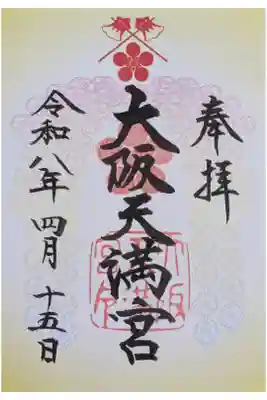 奉拝
大阪天満宮
令和八年 四月 十五日